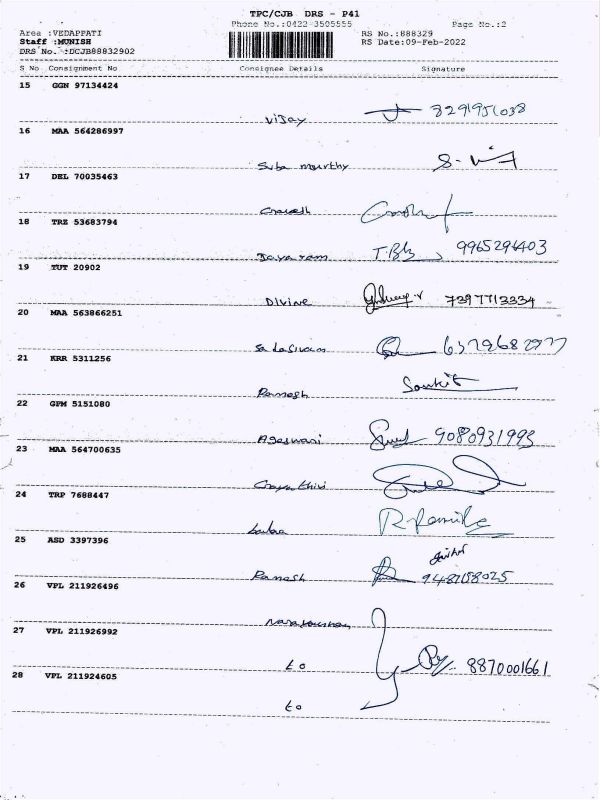 TPC/CJB DRS - P41
Phone No.:0422-3505555 Page No.:2
Area :VEDAPPATI RS No.:888329
Staff :MUNISH RS Date:09-Feb-2022
DRS No. :DCJB88832902
S No Consignment No Consignee Details Signature
15 GGN 97134424
Vijay 8291951038
16 MAA 564286997
Suba murthy
17 DEL 70035463
18 TRZ 53683794
Jayaram 9965296403
19 TUT 20902
Divine 7397713334
20 MAA 563866251
Sadasivam
21 KRR 5311256
Ramesh
22 GPM 5151080
9080931993
23 MAA 564700635
Gayathiri
24 TRP 7688447
R. Ramila
25 ASD 3397396
Ramesh
26 VPL 211926496
27 VPL 211926992
to 8870001661
28 VPL 211924605
to